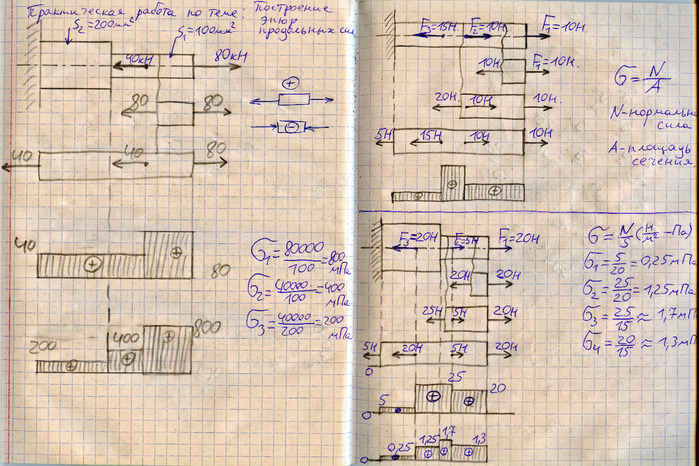 Практическая работа по теме: Построение
эпюр
продольных сил
S₂=200мм²
S₁=100мм²
40кН
80кН
80
80
40
40
80
⊕
⊖
40
⊕
⊕
80
200
400
800
⊕
⊕
⊕
σ₁=80000/100=800 мПа
σ₂=40000/100=400 мПа
σ₃=40000/200=200 мПа
F₃=15Н
F₂=10Н
F₁=10Н.
10Н
F₁=10Н.
20Н.
10Н
10Н.
5Н
15Н
10Н
10Н
σ=N/A
N-нормальн
сила
A-площадь
сечения
F₃=20Н
F₂=5Н
F₁=20Н
20Н
20Н
25Н
5Н
20Н
5Н
20Н
5Н
20Н
0
25
20
5
⊕
⊕
0
0,25
1,25
1,7
1,3
⊕
⊕
⊕
0
σ=N/S(Н/м²-Па)
σ₁=5/20=0,25мПа
σ₂=25/20=1,25мПа
σ₃=25/15≈1,7мП
σ₄=20/15≈1,3мП